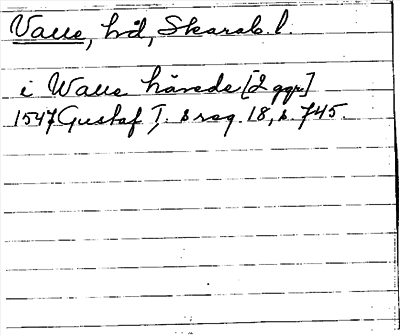 Valle, hd, Skarab. l.
i Walle härede [2 ggr]
1547 Gustaf I:s reg. 18, s. 745.